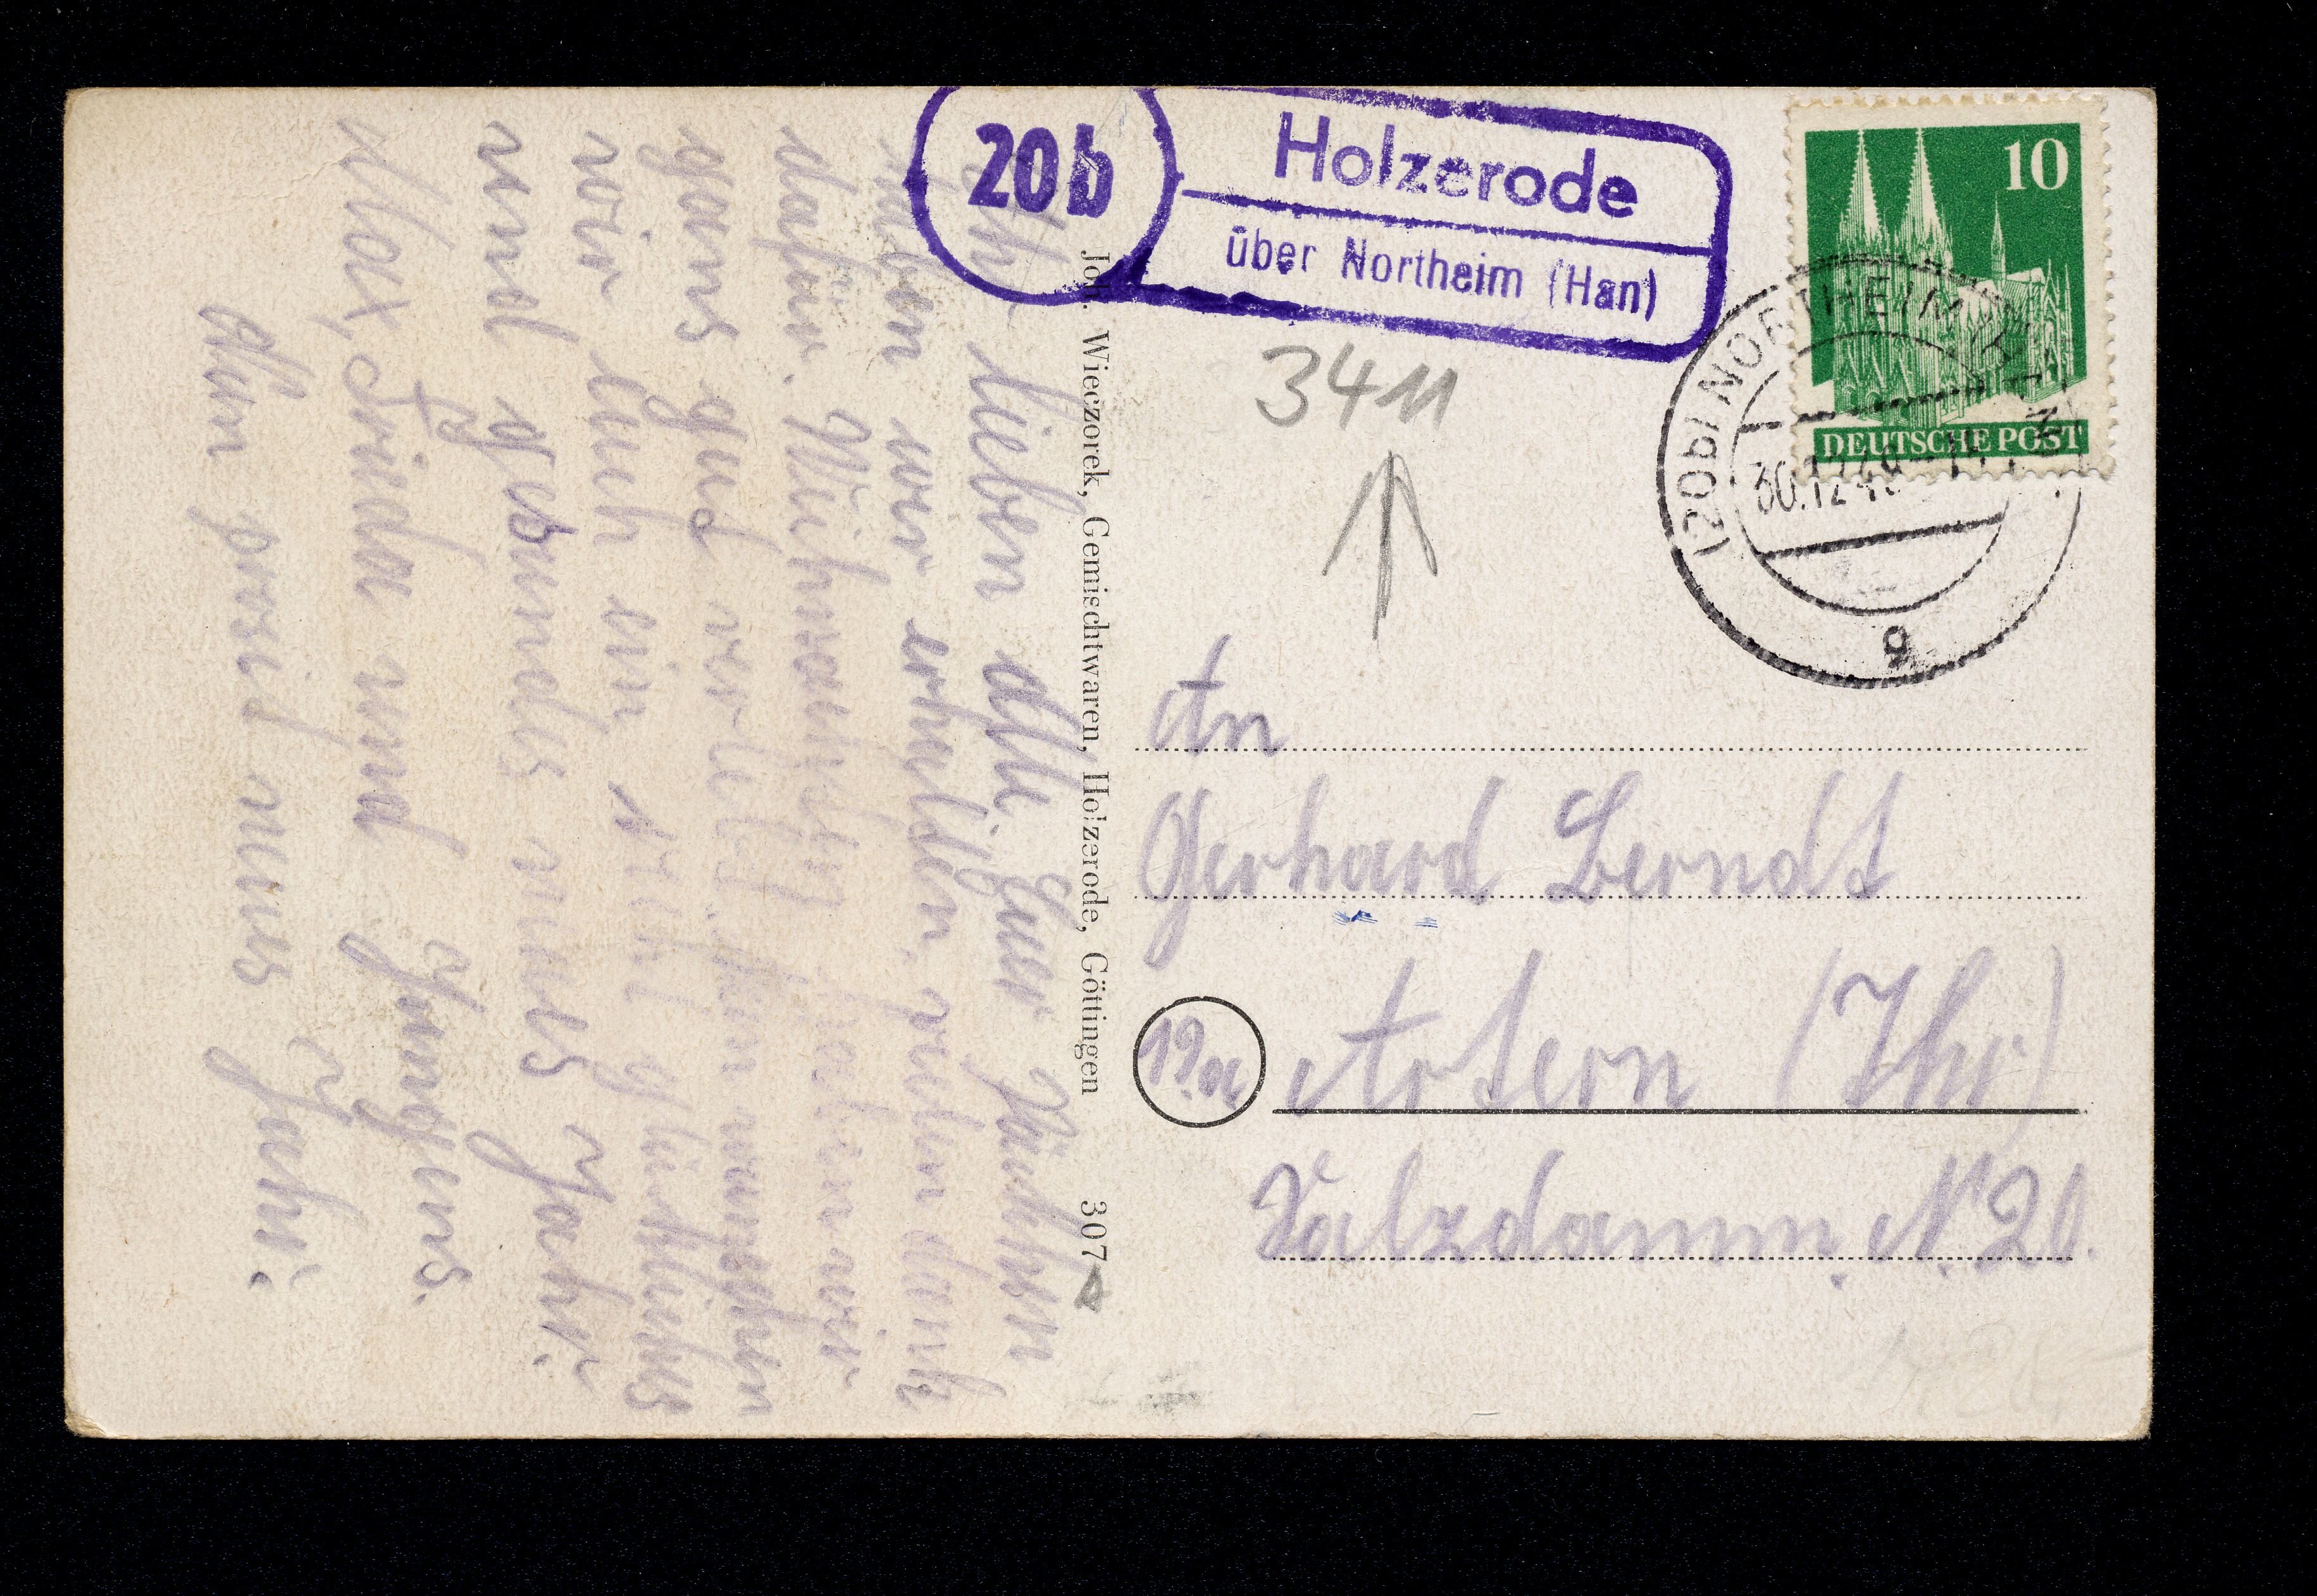 20b
Holzerode
über Northeim (Han)
10
DEUTSCHE POST
(20b) NORTHEIM
30.12.49
g
3411
An
Gerhard Berndt
19a Artern (Thr)
Salzdamm. N. 20.
Joh. Wieczorek, Gemischtwaren, Holzerode, Göttingen 307
lieben alle. Euer Päckchen
haben wir erhalten. vielen dank
dafür. Weihnachten haben wir
ganz gut verlebt. nun wünschen
wir Euch ein recht glückliches
und gesundes neues Jahr.
Max, Frieda und Jungens.
Nun prosit neues Jahr!